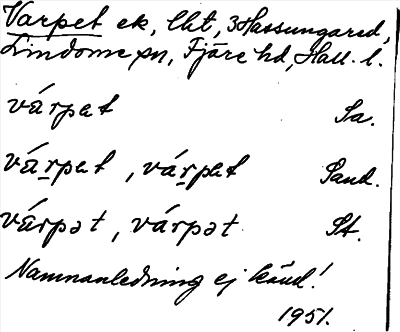 Varpet ek, lht, 3 Hassungared,
Lindome sn, Fjäre hd, Hall. l.
várpet Sa.
várpet, várpet Sand.
várpət, várpət St.
Namnanledning ej känd!
1951.